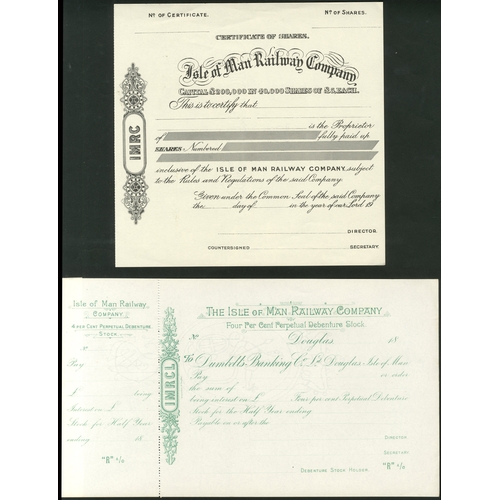 No OF CERTIFICATE. No OF SHARES.
CERTIFICATE OF SHARES.
Isle of Man Railway Company
CAPITAL £200,000 IN 40,000 SHARES OF £5, EACH.
This is to certify that
is the Proprietor
of fully paid up
SHARES Numbered
inclusive of the ISLE OF MAN RAILWAY COMPANY, subject
to the Rules and Regulations of the said Company
Given under the Common Seal of the said Company
the day of in the year of our Lord 19
DIRECTOR.
COUNTERSIGNED SECRETARY.
IMRC
Isle of Man Railway
COMPANY
4 PER CENT PERPETUAL DEBENTURE
STOCK
No
Pay
£ being
Interest on £
Stock for Half Year
ending 18
"R" c/o
IMRCL
THE ISLE OF MAN RAILWAY COMPANY
Four Per Cent Perpetual Debenture Stock.
No Douglas 18
To Dumbell's Banking Co Ld Douglas, Isle of Man
Pay or order
the sum of
being interest on £ Four per cent Perpetual Debenture
Stock for the Half Year ending
Payable on or after the
DIRECTOR
SECRETARY
"R" c/o DEBENTURE STOCK HOLDER.